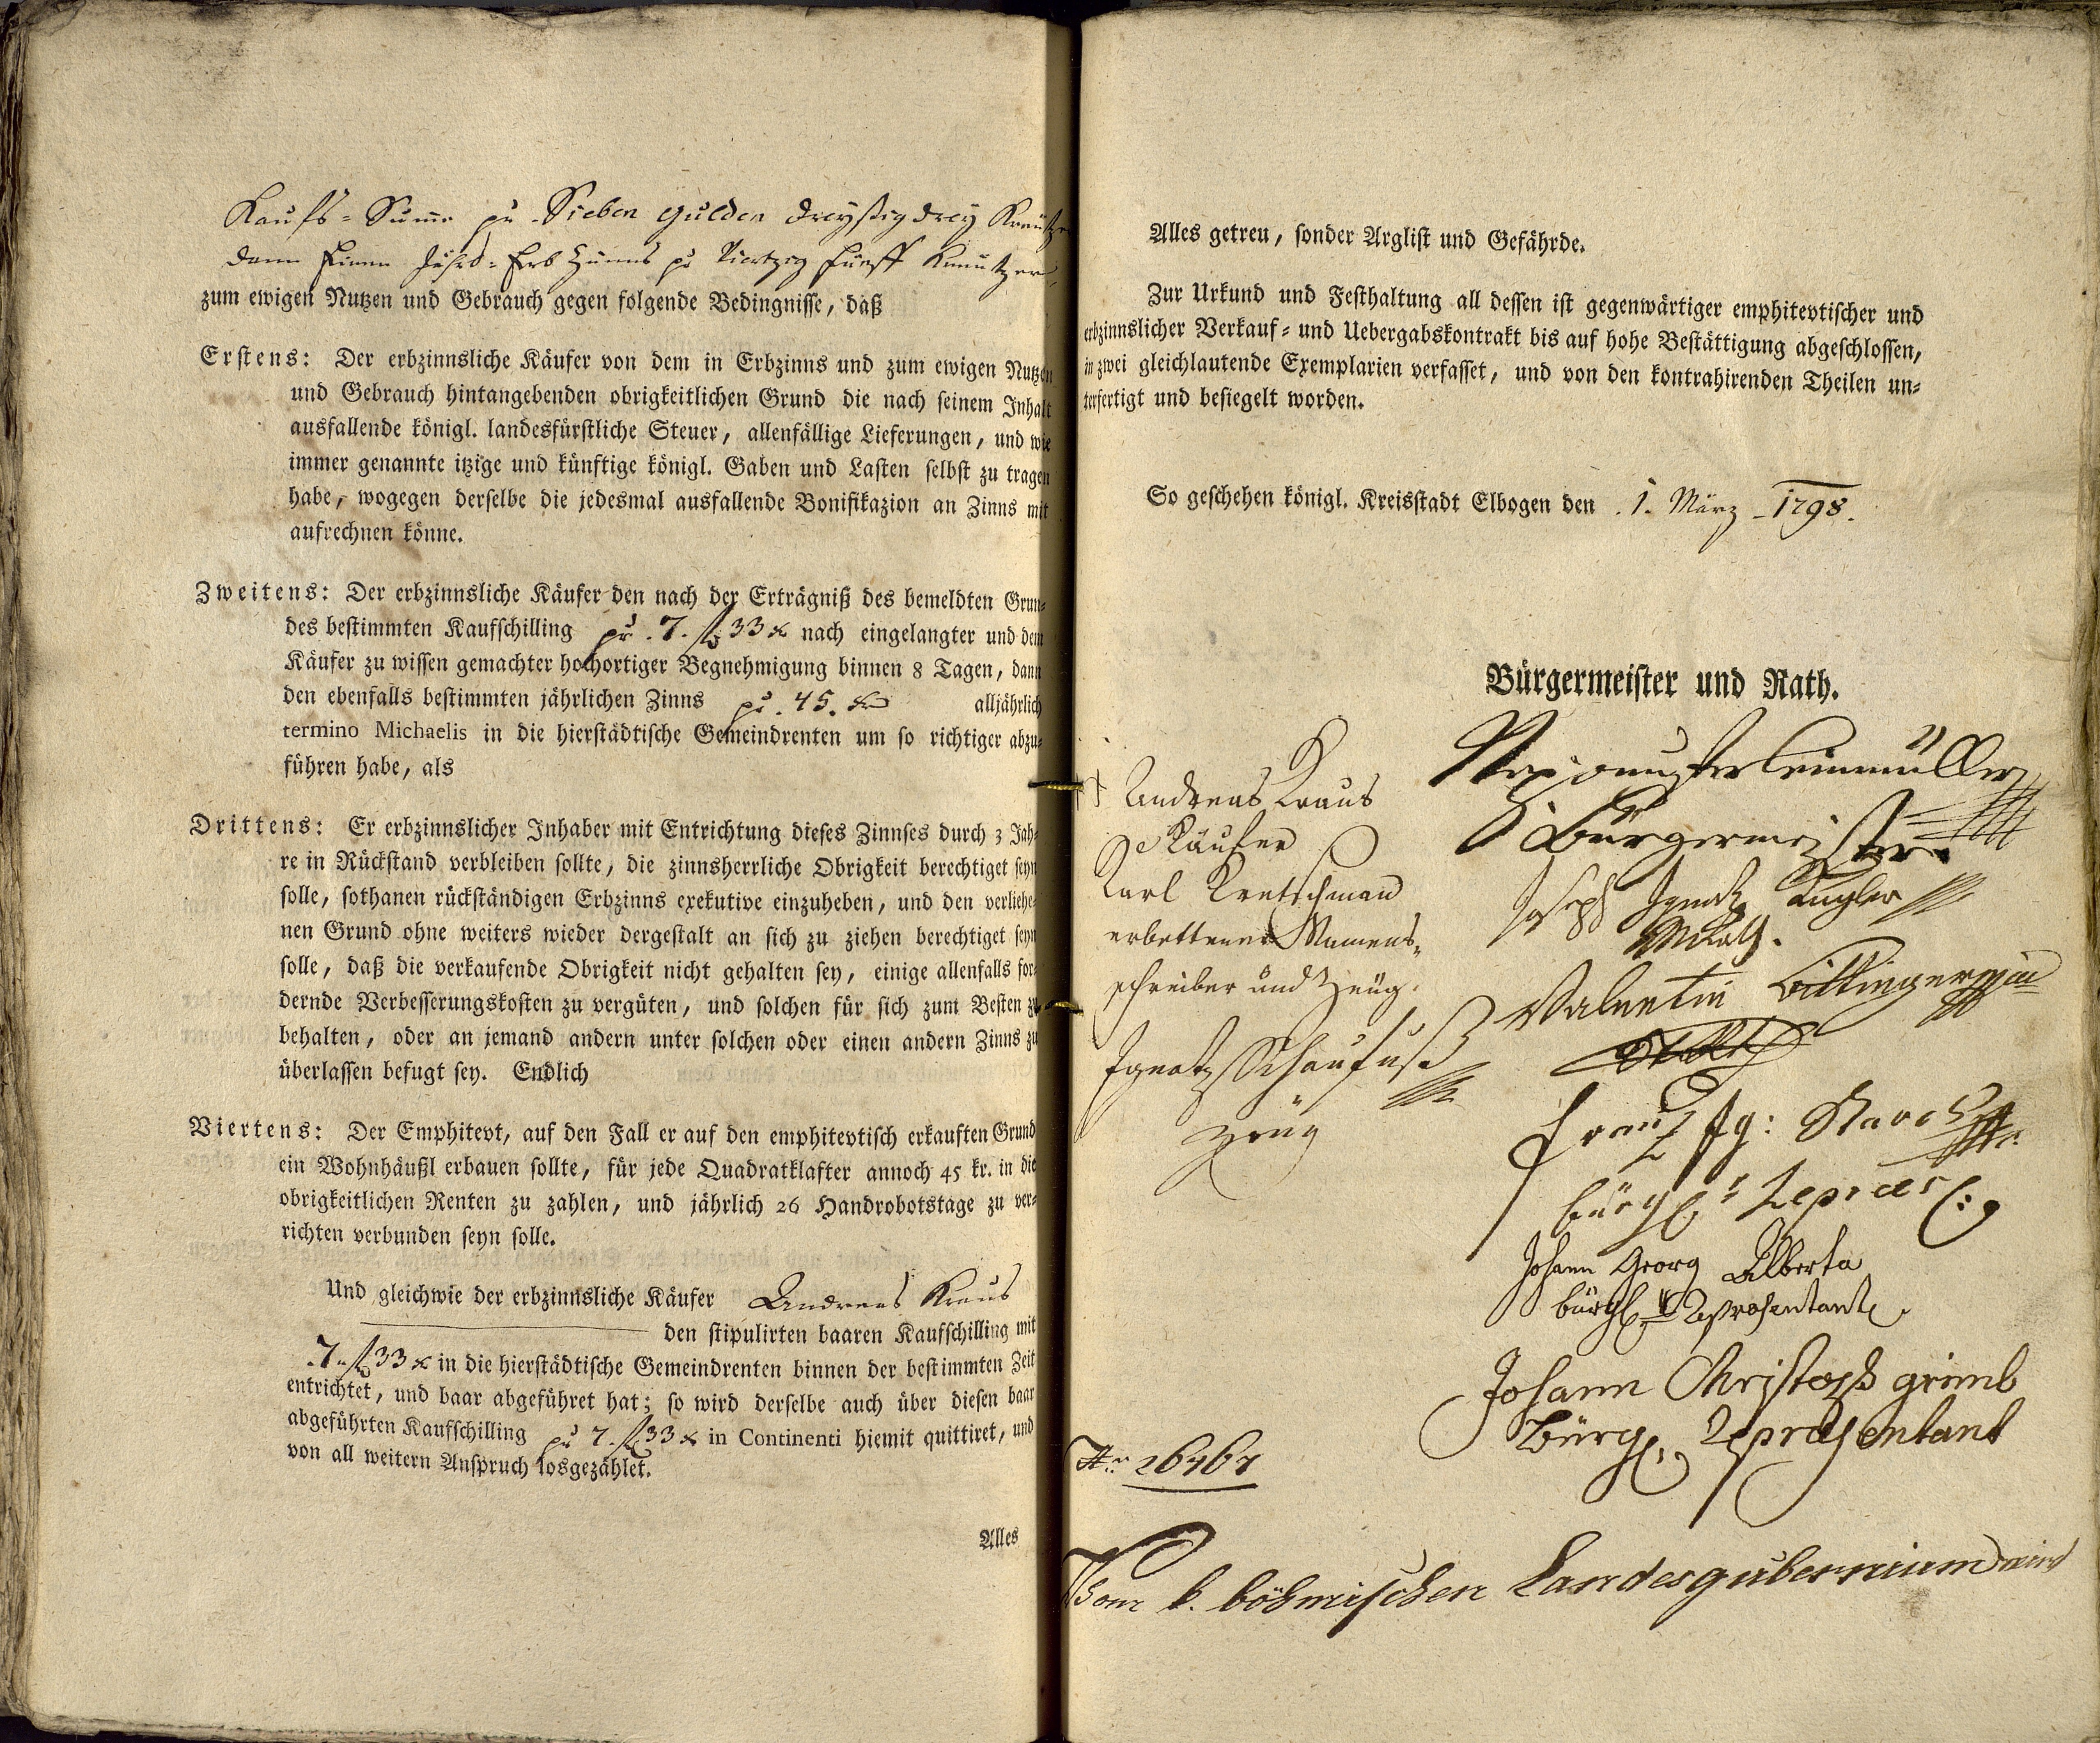 Kaufs-Summe pr Sieben Gulden dreyßig drey Kreutzer
dann Einen Jährl. Erb Zünns pr Viertzig fünff Kreutzer
zum ewigen Nutzen und Gebrauch gegen folgende Bedingnisse, daß
Erstens: Der erbzinnsliche Käufer von dem in Erbzinns und zum ewigen Nutzen
und Gebrauch hintangebenden obrigkeitlichen Grund die nach seinem Inhalt
ausfallende königl. landesfürstliche Steuer, allenfällige Lieferungen, und wie
immer genannte itzige und künftige königl. Gaben und Lasten selbst zu tragen
habe, wogegen derselbe die jedesmal ausfallende Bonifikazion an Zinns mit
aufrechnen könne.
Zweitens: Der erbzinnsliche Käufer den nach der Erträgniß des bemeldten Grun-
des bestimmten Kaufschilling pr. 7. fl 33 x nach eingelangter und dem
Käufer zu wissen gemachter hochortiger Begnehmigung binnen 8 Tagen, dann
den ebenfalls bestimmten jährlichen Zinns pr. 45. x alljährlich
termino Michaelis in die hierstädtische Gemeindrenten um so richtiger abzu-
führen habe, als
Drittens: Er erbzinnslicher Inhaber mit Entrichtung dieses Zinnses durch 3 Jah-
re in Rückstand verbleiben sollte, die zinnsherrliche Obrigkeit berechtiget seyn
solle, sothanen rückständigen Erbzinns exekutive einzuheben, und den verliehe-
nen Grund ohne weiters wieder dergestalt an sich zu ziehen berechtiget seyn
solle, daß die verkaufende Obrigkeit nicht gehalten sey, einige allenfalls for-
dernde Verbesserungskosten zu vergüten, und solchen für sich zum Besten zu
behalten, oder an jemand andern unter solchen oder einen andern Zinns zu
überlassen befugt sey. Endlich
Viertens: Der Emphitevt, auf den Fall er auf den emphitevtisch erkauften Grund
ein Wohnhäußl erbauen sollte, für jede Quadratklafter annoch 45 kr. in die
obrigkeitlichen Renten zu zahlen, und jährlich 26 Handrobotstage zu ver-
richten verbunden seyn solle.
Und gleichwie der erbzinnsliche Käufer Andreas Kraus
den stipulirten baaren Kaufschilling mit
7. fl 33 x in die hierstädtische Gemeindrenten binnen der bestimmten Zeit
entrichtet, und baar abgeführet hat; so wird derselbe auch über diesen baar
abgeführten Kaufschilling pr 7. fl 33 x in Continenti hiemit quittiret, und
von all weitern Anspruch losgezählet.
Alles
Alles getreu, sonder Arglist und Gefährde.
Zur Urkund und Festhaltung all dessen ist gegenwärtiger emphitevtischer und
erbzinnslicher Verkauf- und Uebergabskontrakt bis auf hohe Bestättigung abgeschlossen,
in zwei gleichlautende Exemplarien verfasset, und von den kontrahirenden Theilen un-
terfertigt und besiegelt worden.
So geschehen königl. Kreisstadt Elbogen den 1. März 1798.
Bürgermeister und Rath.
Bürgermeister
Andreas Kraus
Käufer
Karl Kretschman
erbettener Namens-
schreiber und Zeüg.
Ignatz Schaufuß
Zeüg
Joseph Ignatz Kugler
Valentin
Frantz Ig: Storch
bürgl. Repraes:
Johann Georg Alberta
bürgl. Representant.
Johann Christoph grimb
Bürgl. Representant
Nr. 26467
Vom k. böhmischen Landesgubernium wird